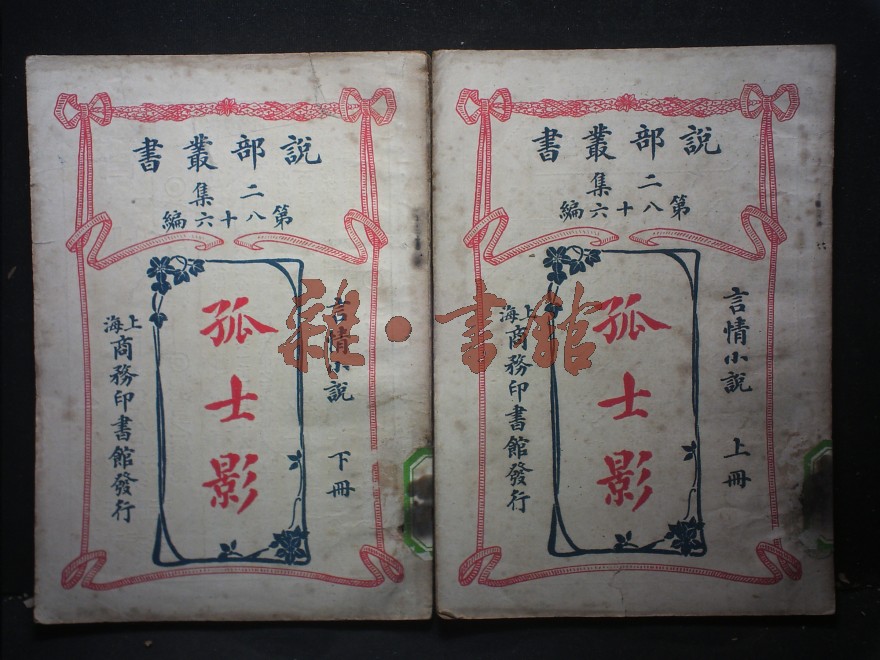 說部叢書
二集
第八十六編
言情小說 上冊
孤士影
上海商務印書館發行
說部叢書
二集
第八十六編
言情小說 下冊
孤士影
上海商務印書館發行
雜·書館